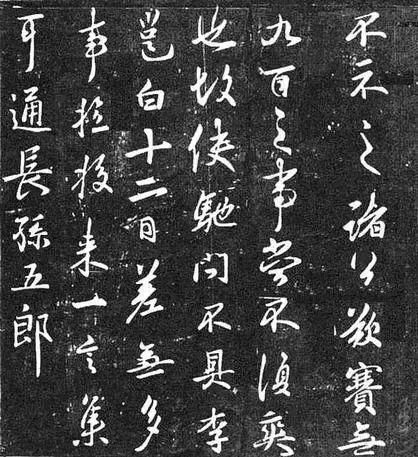 不示之諸公 賽無
九百之事當不須爽
也故使馳問不具李
邕白十二日差無多
事 来一言集
耳通長孫五郎